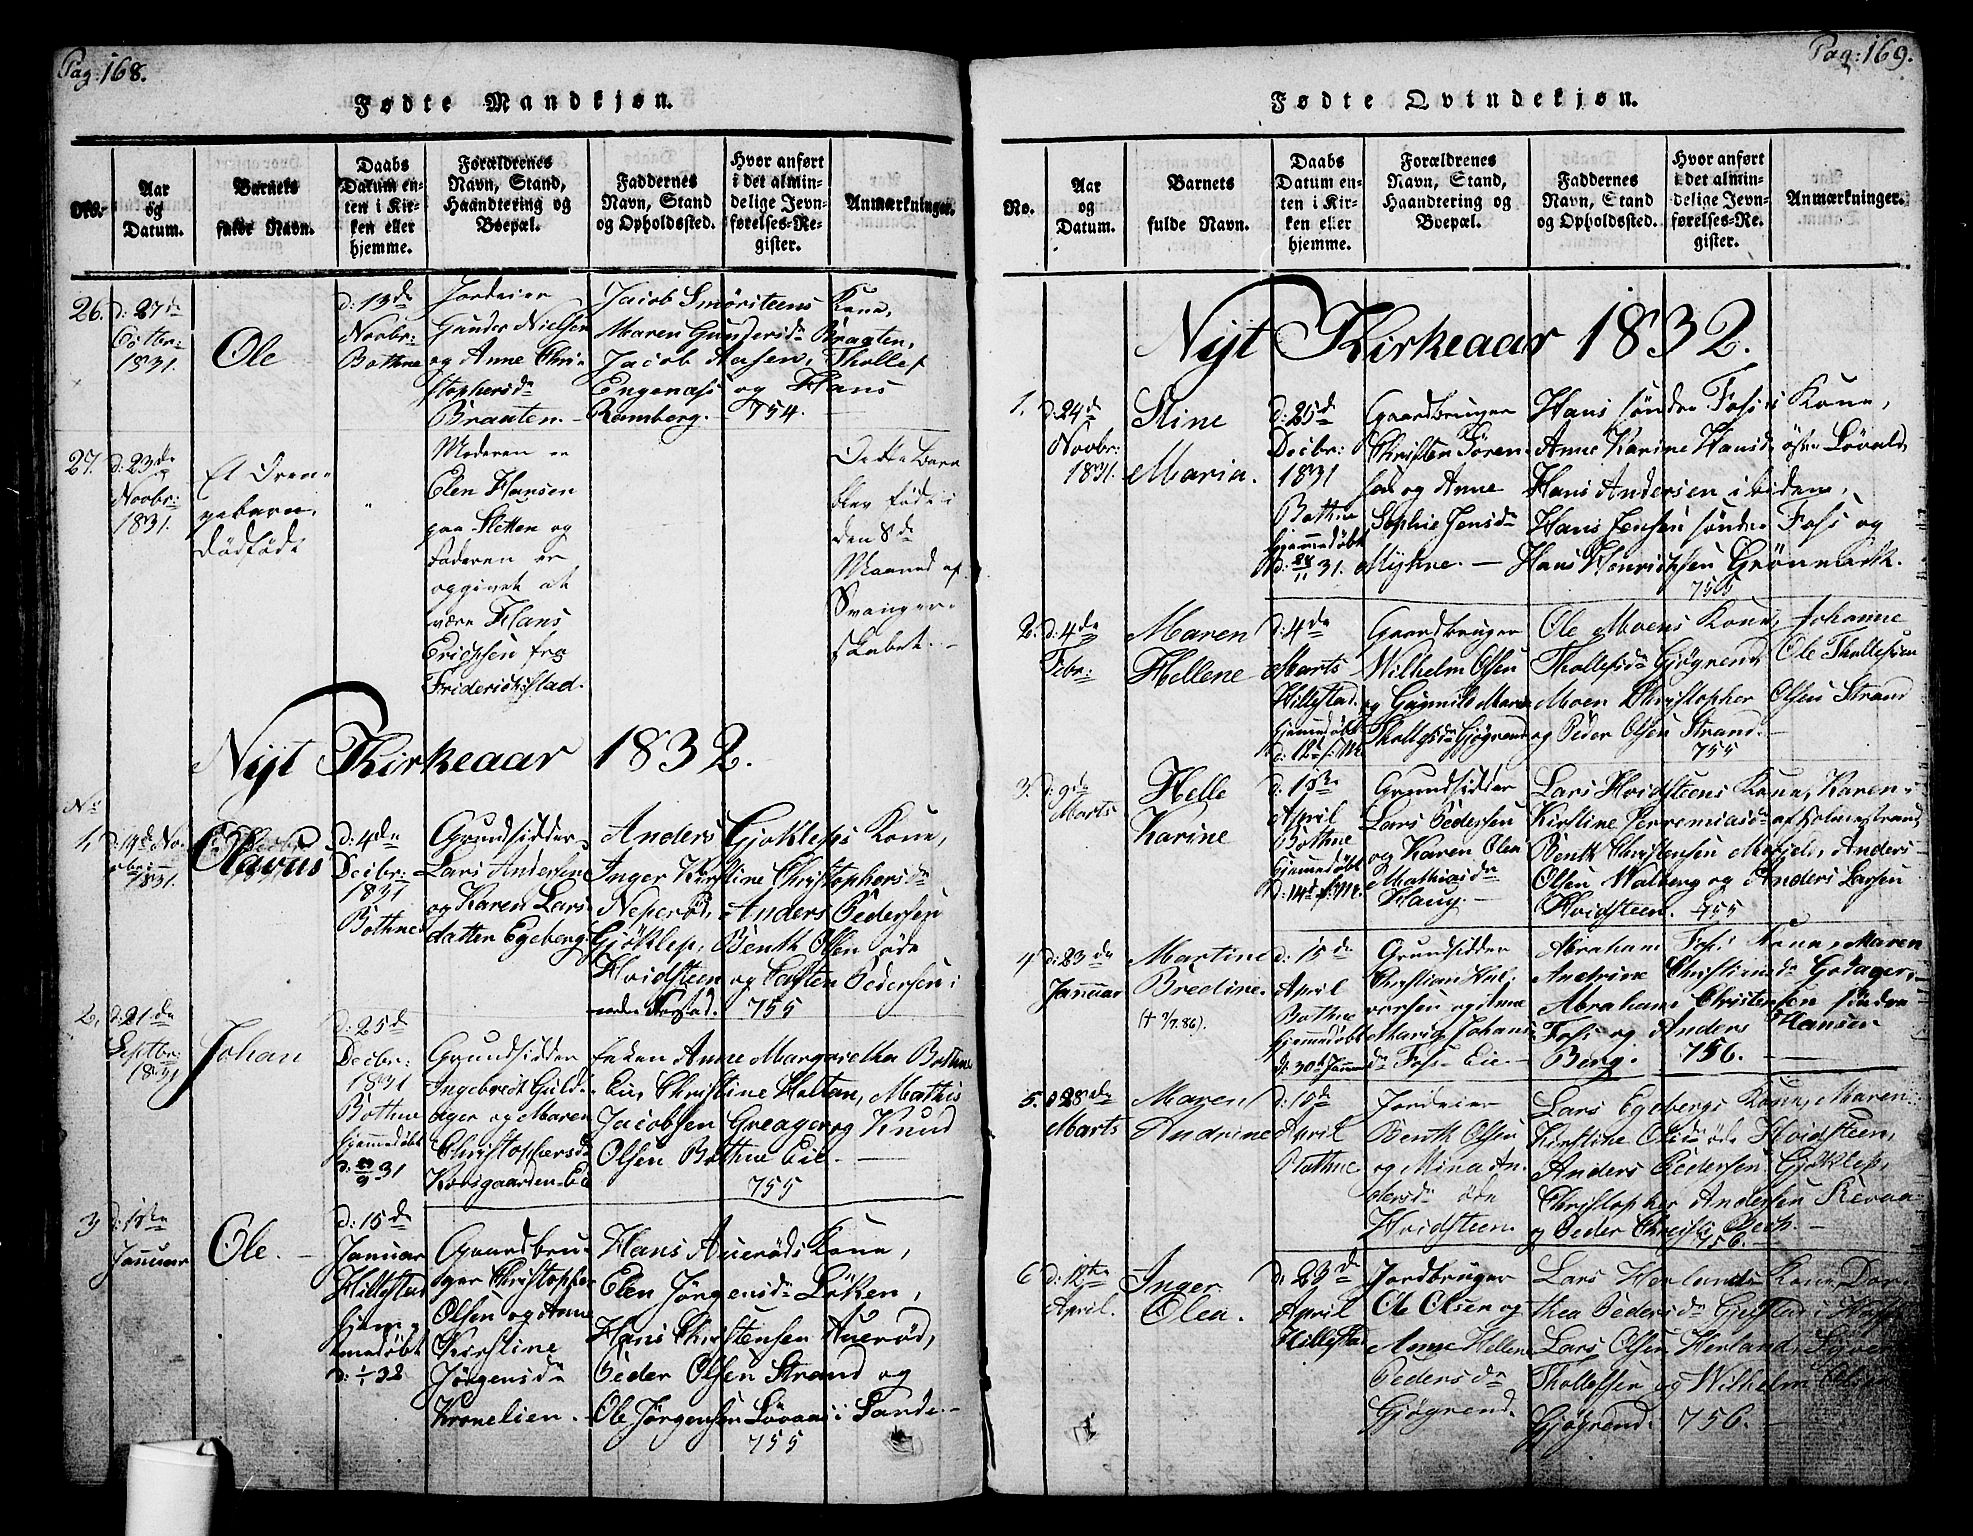 Pag: 168.
Fødte Mandkjøn.
No.
Aar
og
Datum.
Barnets
fulde Navn.
Daabs
Datum en-
ten i Kir-
ken eller
hjemme.
Forældrenes
Navn, Stand,
Haandtering og
Boepæl.
Faddernes
Navn, Stand
og Opholdssted.
Hvor anført
i det almin-
delige Jevn-
førelses-Re-
gister.
Anmærkninger.
26.
d: 27de
Octbr:
1831.
Ole
d: 13de
Novbr:
Bothne
Jordeier
Gunder Nielsen
og Anne Chri-
stophersdr
Braaten.
Jacob Smörsteens Kone,
Maren Gundersdr Braaten,
Jacob Aasen, Thollef
Engenæss og Hans
Ramberg. - 754.
27.
d: 23de
Novbr:
1831.
Et Dren-
gebarn.
Dödfödt
Moderen er
Elen Hansen
paa Sletten og
Faderen er
opgivet at
være Hans
Erichsen fra
Friderichstad.
Dette Barn
blev födt i
den 8de
Maaned af
Svanger-
skabet.
Nyt Kirkeaar 1832.
No
1.
d: 14de No-
vbr:
1831.
Olavus
d: 4de
Decbr:
1831
Bothne
Grundsidder
Lars Andersen
og Karen Lars-
datter Egeberg
Anders Gjöklep's Kone,
Inger Kirstine Christophersdr
Neperöd, Anders Pedersen
Gjöklep, Benth Olsen öde
Hvidsteen og Carsten Pedersen
755
2.
d: 21de
Septbr:
1831
Johan
d: 25de
Decbr:
1831
Bothne
hjemmedöbt
31
Grundsidder
Ingebredt Guld-
ager og Maren
Christophersdr
Korsgaarden Eie
Enken Anne Margaretha Bothne
Eie, Christine Holtan, Mathis
Jacobsen Greager og Knud
Olsen Bothne Eie
755
3
d: 1ste
Januar
Ole.
d: 15de
Januar
Hillestad
hjem-
medöbt
d: 1/1 32
Gaardbru-
ger Christopher
Olsen og Anne
Kirstine
Jörgensdr
Kronelien.
Hans Aueröds Kone,
Elen Jörgensdr Löken,
Hans Christensen Aueröd,
Peder Olsen Strand og
Ole Jörgensen Lövaas i Sande.
755
Pag: 169.
Fødte Qvindekjøn.
No.
Aar
og
Datum.
Barnets
fulde Navn.
Daabs
Datum en-
ten i Kir-
ken eller
hjemme.
Forældrenes
Navn, Stand,
Haandtering og
Boepæl.
Faddernes
Navn, Stand
og Opholdssted.
Hvor anført
i det almin-
delige Jevn-
førelses-Re-
gister.
Anmærkninger.
Nyt Kirkeaar 1832.
1.
d: 24de
Novbr:
1831.
Stine
Maria.
d: 25de
Decbr:
1831
Bothne
hjemmedöbt
31.
Gaardbruger
Christen Sören-
sen og Anne
Sophie Jensdr
Myhre.
Hans söndre Foss's Kone,
Anne Karine Hansdr östre Lövald
Hans Andersen ibidem,
Hans Jensen söndre Foss og
Hans Henrichsen Grönmark.
755
2.
d: 4de
Febr:
Maren
Hellene
d: 4de
Marts
Hillestad
hjemmedöbt
d: 12te f: M:
Gaardbruger
Wilhelm Olsen
og Gunnild Marie
Thollefsdr Gjögrend
Ole Moens Kone, Johanne
Thollefsdr Gjögrend, Ole Thollefsen
Moen Christopher Olsen Strand
og Peder Olsen Strand.
755
3.
d: 9de
Marts
Helle
Karine
April
Bothne
hjemmedöbt
d: 14de f: M:
Grundsidder
Lars Pedersen
og Karen Olea
Mathiasdr
Haug.
Lars Hvidsteens Kone, Karen
Kirstine Jerremiasdr af Holmestrand
Benth Christensen Anders
Olsen Walberg og Anders Larsen
Hvidsteen. 755
4
d: 23de
Januar
Martine
Bredine.
(† 3/7.86).
d: 15de
April
Bothne
hjemmedöbt
d: 30te Januar
Grundsidder
Christian Hal-
vorsen og Anne
Marie Johans-
dr Foss Eie
Abraham Foss's Kone, Maren
Andrine Christiansdr Godager,
Abraham Christensen söndre
Foss og Anders Hansen
Berg. 756.
5.
d 28de
Marts
Maren
Andrine
April
Bothne
Jordeier
Benth Olsen
og Mina An-
dersdr öde
Hvidsteen.
Lars Egebergs Kone, Maren
Kirstine Olsdr öde Hvidsteen,
Anders Pedersen Gjöklep,
Christopher Andersen Revaa
og Peder Christ: Bech.
756.
6
d: 12te
April.
Inger
Olea.
d: 23de
April
Hillestad
Jordbruger
Ole Olsen og
Anne Hellene
Pedersdr
Gjögrend.
Lars Herlands Kone, Dor-
thea Pedersdr
Lars Olsen Herland,
Thollefsen og Wilhelm Olsen
Gjögrend. 756.